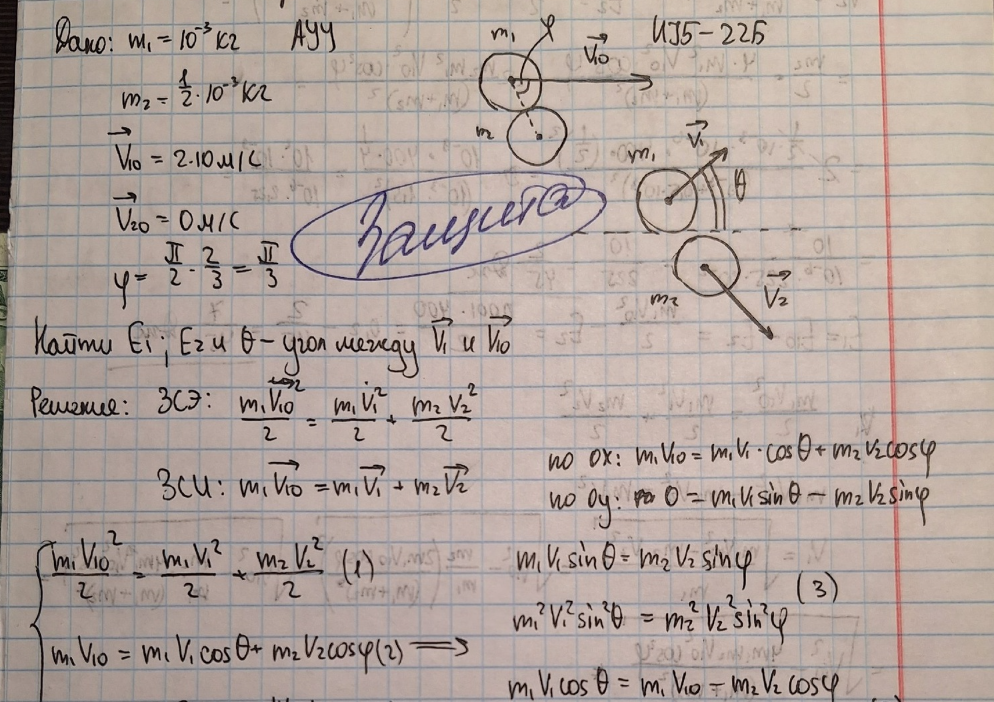 Дано: m₁ = 10⁻³ кг АУЧ ИУ5-22Б
m₂ = 1/2 · 10⁻³ кг
V₁₀ = 2·10 м/с
V₂₀ = 0 м/с
φ = π/2 · 2/3 = π/3
m₁ φ V₁₀
m₂
m₁ V₁ θ
m₂ V₂
Защита
Найти E₁; E₂ и θ - угол между V₁ и V₁₀
Решение: ЗСЭ: m₁V₁₀²/2 = m₁V₁²/2 + m₂V₂²/2
ЗСИ: m₁V₁₀ = m₁V₁ + m₂V₂
по ox: m₁V₁₀ = m₁V₁·cosθ + m₂V₂cosφ
по oy: 0 = m₁V₁sinθ - m₂V₂sinφ
m₁V₁₀²/2 = m₁V₁²/2 + m₂V₂²/2 (1)
m₁V₁₀ = m₁V₁cosθ + m₂V₂cosφ (2) ⟹
m₁V₁sinθ = m₂V₂sinφ
m₁²V₁²sin²θ = m₂²V₂²sin²φ (3)
m₁V₁cosθ = m₁V₁₀ - m₂V₂cosφ